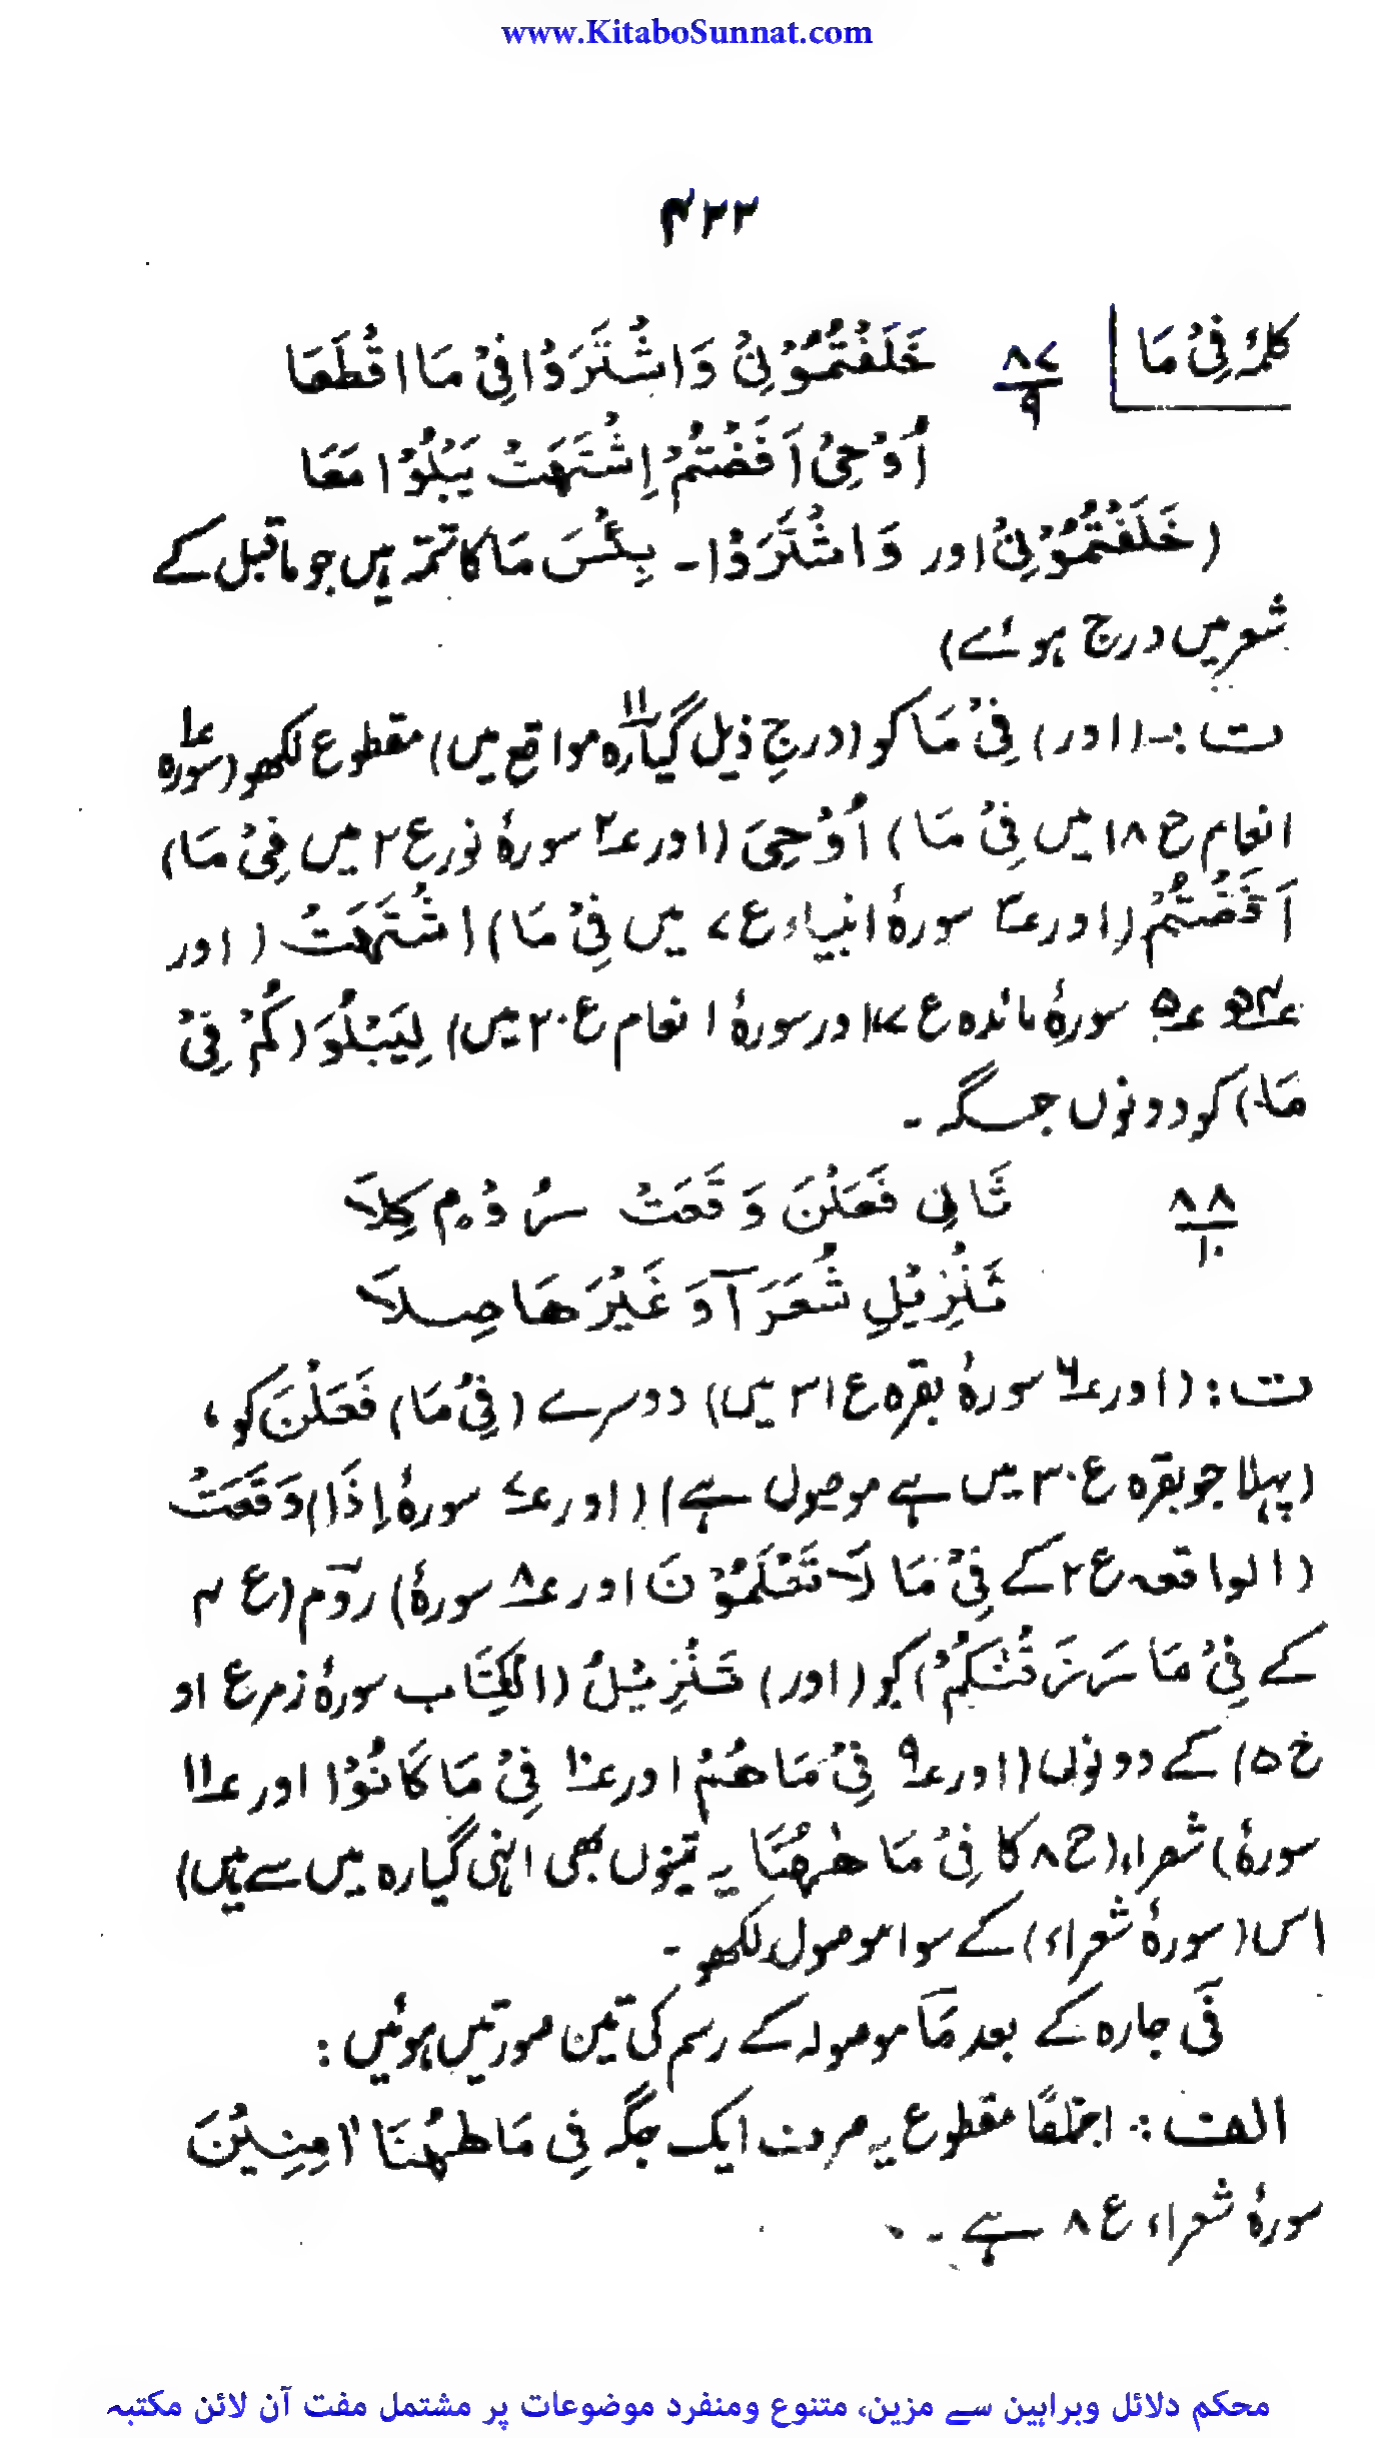 www.KitaboSunnat.com
۴۲۲
کلمۂ فِیْ مَا ۸۷/۹ خَلَفْتُمُوْنِیْ وَاشْتَرَوْا فِیْ مَا اقْطَعَا
اُوْحِیْ اَفَضْتُمْ اِشْتَهَتْ یَبْلُوْا مَعَا
(خَلَفْتُمُوْنِیْ اور وَاشْتَرَوْا۔ بِئْسَ مَا کا تتمہ ہیں جو ماقبل کے
شعر میں درج ہوئے)
ت :۔ (اور) فِیْ مَا کو (درجِ ذیل گیارہ۱۱ مواقع میں) مقطوع لکھو (۱؎ سورہ
انعام ع ۱۸ میں فِیْ مَا) اُوْحِیَ (اور ۲؎ سورۂ نور ع ۲ میں فِیْ مَا)
اَفَضْتُمْ (اور ۳؎ سورۂ انبیاء ع ۷ میں فِیْ مَا) اشْتَهَتْ (اور
۴؎ و ۵؎ سورۂ مائدہ ع ۷ اور سورۂ انعام ع ۲۰ میں) لِیَبْلُوَ (کُمْ فِیْ
مَا) کو دونوں جگہ ۔
۸۸/۱۰ ثَانِی فَعَلْنَ وَقَعَتْ رُوْمٌ کِلَا
تَنْزِیْلِ شُعَرَآ وَ غَیْرَهَا صِلَا
ت : (اور ۶؎ سورۂ بقرہ ع ۳۱ میں) دوسرے (فِیْ مَا) فَعَلْنَ کو ،
(پہلا جو بقرہ ع ۳۰ میں ہے موصول ہے) (اور ۷؎ سورۂ اِذَا) وَقَعَتْ
(الواقعہ ع ۲ کے فِیْ مَا لَا تَعْلَمُوْنَ اور ۸؎ سورۂ) روم (ع ۴
کے فِیْ مَا رَزَقْنٰکُمْ) کو (اور) تَنْزِیْلُ (الْکِتَاب سورۂ زمر ع ۱ و
ع ۵) کے دونوں (اور ۹؎ فِیْ مَا هُمْ اور ۱۰؎ فِیْ مَا کَانُوْا اور ۱۱؎
سورۂ) شعراء (ع ۸ کا فِیْ مَا هٰهُنَا یہ تینوں بھی انہی گیارہ میں سے ہیں)
اس (سورۂ شعراء) کے سوا موصول لکھو ۔
فِی جارہ کے بعد مَا موصولہ کے رسم کی تین صورتیں ہوئیں :
الف : اجماعًا مقطوع یہ صرف ایک جگہ فِی مَا هٰهُنَا اٰمِنِیْنَ
سورۂ شعراء ع ۸ ہے ۔
محکم دلائل وبراہین سے مزین، متنوع ومنفرد موضوعات پر مشتمل مفت آن لائن مکتبہ